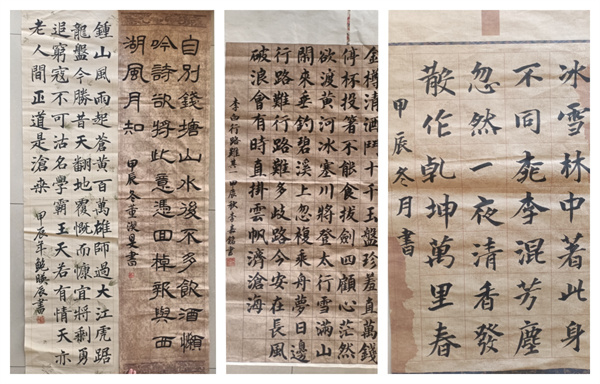 鍾山風雨起蒼黃百萬雄師過大江虎踞
龍盤今勝昔天翻地覆慨而慷宜將剩勇
追窮寇不可沽名學霸王天若有情天亦
老人間正道是滄桑
甲辰年書
自別錢塘山水後不多飲酒懶
吟詩欲將此意憑回棹報與西
湖風月知
甲辰冬董淑星書
金樽清酒鬥十千玉盤珍羞直萬錢
停杯投箸不能食拔劍四顧心茫然
欲渡黃河冰塞川將登太行雪滿山
閒來垂釣碧溪上忽複乘舟夢日邊
行路難行路難多歧路今安在長風
破浪會有時直掛雲帆濟滄海
李白行路難其一甲辰秋李書
冰雪林中著此身
不同桃李混芳塵
忽然一夜清香發
散作乾坤萬里春
甲辰冬月書